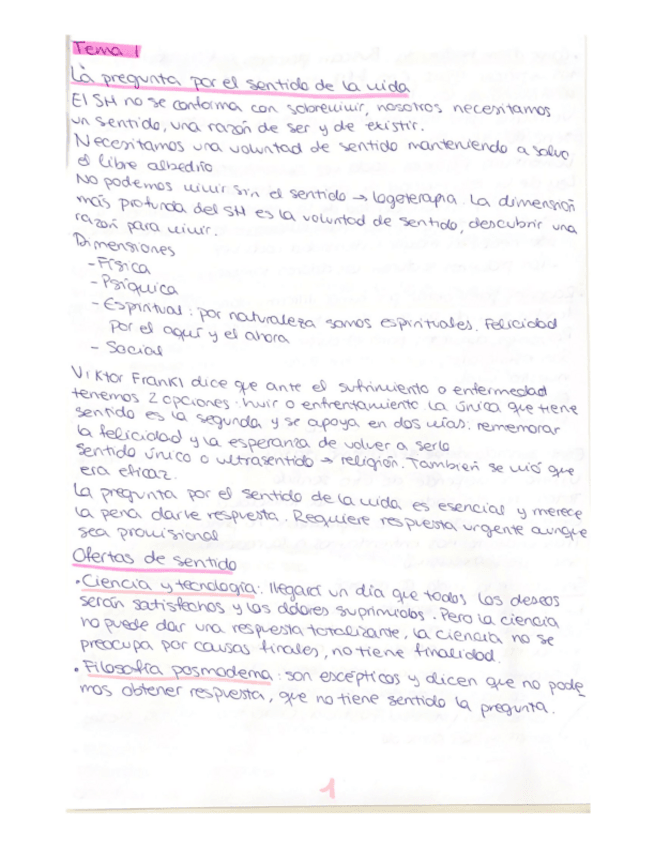 Tema 1
La pregunta por el sentido de la vida
El SH no se conforma con sobrevivir, nosotros necesitamos
un sentido, una razón de ser y de existir.
Necesitamos una voluntad de sentido manteniendo a salvo
el libre albedrío
No podemos vivir sin el sentido → logoterapia. La dimensión
más profunda del SH es la voluntad de sentido, descubrir una
razón para vivir.
Dimensiones
- Física
- Psíquica
- Espiritual: por naturaleza somos espirituales. Felicidad
por el aquí y el ahora
- Social
Viktor Frankl dice que ante el sufrimiento o enfermedad
tenemos 2 opciones: huir o enfrentamiento. La única que tiene
sentido es la segunda y se apoya en dos vías: rememorar
la felicidad y la esperanza de volver a serlo
Sentido único o ultrasentido → religión. También se vió que
era eficaz.
La pregunta por el sentido de la vida es esencial y merece
la pena darle respuesta. Requiere respuesta urgente aunque
sea provisional
Ofertas de sentido
• Ciencia y tecnología: llegará un día que todos los deseos
serán satisfechos y los dolores suprimidos. Pero la ciencia
no puede dar una respuesta totalizante, la ciencia no se
preocupa por causas finales, no tiene finalidad.
• Filosofía posmoderna: son escépticos y dicen que no pode
mos obtener respuesta, que no tiene sentido la pregunta.
1